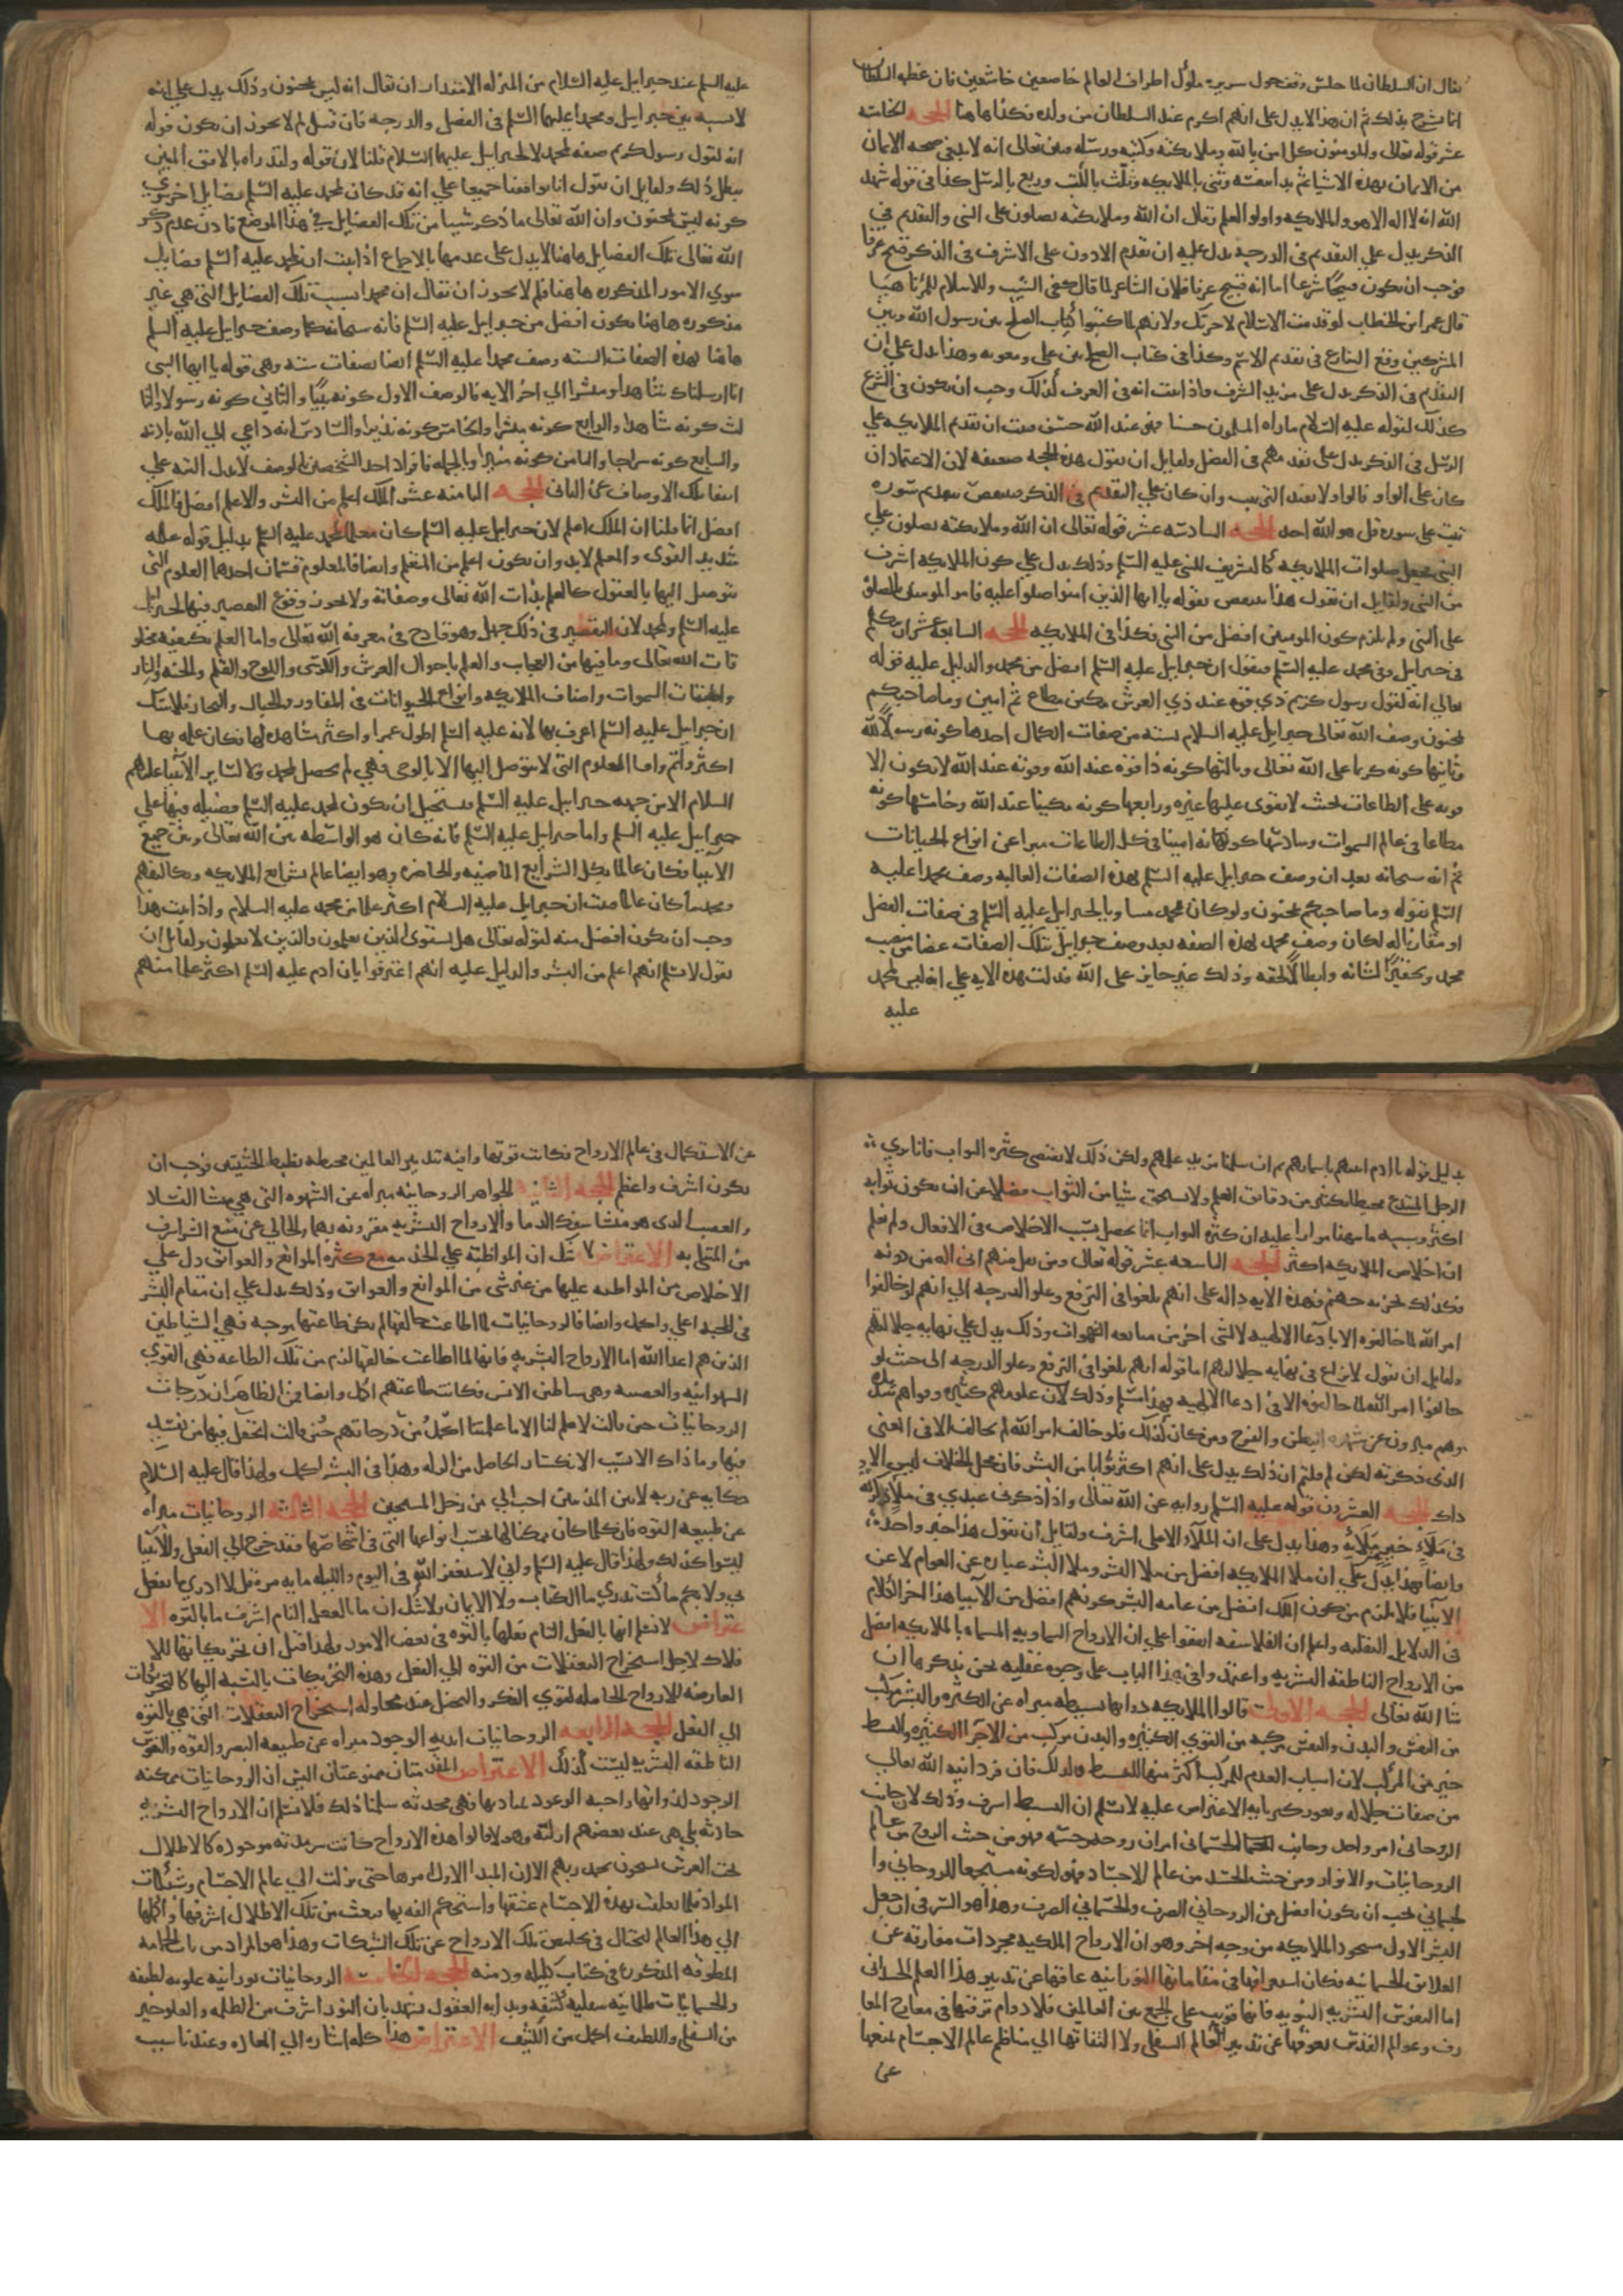 يقال ان السلطان لما جلس وقف حول سريره ملوك اطراف العالم خاضعين خاشعين فان عظمه السلطان
انما تشرح بذلك ثم ان هذا لا يدل على انهم اكرم عند السلطان من ولده فكذا هاهنا الحجه الخامسه
عشر قوله تعالى والمومنون كل امن بالله وملايكته وكتبه ورسله فبين تعالى انه لا بد في صحه الايمان
من الايمان بهذه الاشيا ثم بدا بنفسه وثنى بالملايكه وثلث بالكتب وربع بالرسل وكذا في قوله شهد
الله انه لا اله الا هو والملايكه واولو العلم وقال ان الله وملايكته يصلون على النبي والتقديم في
الذكر يدل علي التقديم في الدرجه يدل عليه ان تقديم الادون على الاشرف في الذكر قبيح عرفا
فوجب ان يكون قبيحا شرعا اما انه قبيح عرفا فلان الشاعر لما قال كفى الشيب والاسلام للمرء ناهيا
قال عمر ابن الخطاب لو قدمت الاسلام لاجزتك ولانهم لما كتبوا كتاب الصلح بين رسول الله وبين
المشركين وقع التنازع في تقديم الاسم وكذا في كتاب الصلح بين علي ومعويه وهذا يدل علي ان
التقديم في الذكر يدل على مزيد الشرف واذا ثبت انه في العرف كذلك وجب ان يكون في الشرع
كذلك لقوله عليه السلام ما راه المسلمون حسنا فهو عند الله حسن فثبت ان تقديم الملايكه علي
الرسل في الذكر يدل على تقديمهم في الفضل ولقايل ان يقول هذه الحجه ضعيفه لان الاعتماد ان
كان على الواو فالواو لا تفيد الترتيب وان كان علي التقديم في الذكر فينتقض بتقديم سوره
تبت على سوره قل هو الله احد الحجه السادسه عشر قوله تعالى ان الله وملايكته يصلون علي
النبي فجعل صلوات الملايكه كالتشريف للنبي عليه السلم وذلك يدل علي كون الملايكه اشرف
من النبي ولقايل ان يقول هذا ينتقض بقوله يا ايها الذين امنوا صلوا عليه فامر المومنين بالصلوه
على النبي ولم يلزم كون المومنين افضل من النبي فكذا في الملايكه الحجه السابعه عشر ان نتكلم
في جبرايل وفي محمد عليه السلم فنقول ان جبرايل عليه السلم افضل من محمد والدليل عليه قوله
تعالي انه لقول رسول كريم ذي قوه عند ذي العرش مكين مطاع ثم امين وما صاحبكم
بمجنون وصف الله تعالى جبرايل عليه السلام بسته من صفات الكمال احدها كونه رسولا لله
وثانيها كونه كريما على الله تعالى وثالثها كونه ذا قوه عند الله وقوته عند الله لا تكون الا
قوته على الطاعات بحيث لا يقوى عليها غيره ورابعها كونه مكينا عند الله وخامسها كونه
مطاعا في عالم السموات وسادسها كونه امينا في كل الطاعات مبرا عن انواع الخيانات
ثم انه سبحانه بعد ان وصف جبرايل عليه السلم بهذه الصفات العاليه وصف محمدا عليه
السلم بقوله وما صاحبكم بمجنون ولو كان محمد مساويا لجبرايل عليه السلم في صفات الفضل
او مقاربا له لكان وصف محمد بهذه الصفه بعد وصف جبرايل بتلك الصفات غضا من منصب
محمد وتحقيرا لشانه وابطالا لحقه وذلك غير جايز على الله فدلت هذه الايه علي انه ليس لمحمد
عليه
عليه السلم عند جبرايل عليه السلام من المنزله الا مقدار ان يقال انه ليس بمجنون وذلك يدل علي انه
لا نسبه بين جبرايل ومحمدا عليهما السلم في الفضل والدرجه فان قيل لم لا يجوز ان يكون قوله
انه لقول رسول كريم صفه لمحمد لا لجبرايل عليهما السلام قلنا لان قوله ولقد راه بالافق المبين
يبطل ذلك ولقايل ان يقول انا توافقنا جميعا علي انه قد كان لمحمد عليه السلم فضايل اخر سوي
كونه ليس بمجنون وان الله تعالى ما ذكر شيا من تلك الفضايل في هذا الموضع فاذن عدم ذكر
الله تعالى تلك الفضايل هاهنا لا يدل على عدمها بالاجماع اذا ثبت ان لمحمد عليه السلم فضايل
سوي الامور المذكوره هاهنا فلم لا يجوز ان يقال ان محمدا بسبب تلك الفضايل التي هي غير
مذكوره هاهنا يكون افضل من جبرايل عليه السلم فانه سبحانه كما وصف جبرايل عليه السلم
هاهنا بهذه الصفات السته وصف محمدا عليه السلم ايضا بصفات سته وهي قوله يا ايها النبي
انا ارسلناك شاهدا ومبشرا الي اخر الايه فالوصف الاول كونه نبيا والثاني كونه رسولا والثا
لث كونه شاهدا والرابع كونه مبشرا والخامس كونه نذيرا والسادس انه داعي الي الله باذنه
والسابع كونه سراجا والثامن كونه منيرا وبالجمله فافراد احد الشخصين بالوصف لا يدل البته علي
انتفا تلك الاوصاف عن الثاني الحجه الثامنه عشر الملك اعلم من البشر والاعلم افضل فالملك
افضل انما قلنا ان الملك اعلم لان جبرايل عليه السلم كان معلما لمحمد عليه السلم بدليل قوله علمه
شديد القوى والمعلم لا بد وان يكون اعلم من المتعلم وايضا فالعلوم قسمان احدهما العلوم التي
يتوصل اليها بالعقول كالعلم بذات الله تعالى وصفاته ولا يجوز وقوع التقصير فيها لجبرايل
عليه السلم ولمحمد لان التقصير في ذلك جهل وهو قادح في معرفه الله تعالى واما العلم بكيفيه مخلو
قات الله تعالى وما فيها من العجايب والعلم باحوال العرش والكرسي واللوح والقلم والجنه والنار
واطباق السموات واصناف الملايكه وانواع الحيوانات في المفاوز والجبال والبحار فلا شك
ان جبرايل عليه السلم اعرف بها لانه عليه السلم اطول عمرا واكثر مشاهده لها فكان علمه بها
اكثر واتم واما العلوم التي لا يتوصل اليها الا بالوحي فهي لم تحصل لمحمد ولا لساير الانبيا عليهم
السلام الا من جهه جبرايل عليه السلم فيستحيل ان يكون لمحمد عليه السلم فضيله فيها علي
جبرايل عليه السلم واما جبرايل عليه السلم فانه كان هو الواسطه بين الله تعالى وبين جميع
الانبيا فكان عالما بكل الشرايع الماضيه والحاضره وهو ايضا عالم بشرايع الملايكه وتكاليفهم
ومحمد ما كان عالما فثبت ان جبرايل عليه السلام اكثر علما من محمد عليه السلام واذا ثبت هذا
وجب ان يكون افضل منه لقوله تعالى هل يستوي الذين يعلمون والذين لا يعلمون ولقايل ان
يقول لا نسلم انهم اعلم من البشر والدليل عليه انهم اعترفوا بان ادم عليه السلم اكثر علما منهم
بدليل قوله يا ادم انبيهم باسمايهم ثم ان سلمنا مزيد علمهم ولكن ذلك لا يقتضي كثره الثواب فانا نري
الرجل المبتدع محيطا بكثير من دقايق العلم ولا يستحق شيا من الثواب فضلا عن ان يكون ثوابه
اكثر وسببه ما نبهنا مرارا عليه ان كثره الثواب انما يحصل بحسب الاخلاص في الافعال ولم نعلم
ان اخلاص الملايكه اكثر الحجه التاسعه عشر قوله تعالى ومن يقل منهم اني اله من دونه
فذلك نجزيه جهنم فهذه الايه داله على انهم بلغوا في الترفع وعلو الدرجه الي انهم لو خالفوا
امر الله لما خالفوه الا بادعا الالهيه لا لشي اخر من متابعه الشهوات وذلك يدل علي نهايه جلالتهم
ولقايل ان يقول لا نزاع في نهايه جلالتهم اما قوله انهم بلغوا في الترفع وعلو الدرجه الى حيث لو
خالفوا امر الله لما خالفوه الا في ادعا الالهيه فهذا مسلم وذلك لان علومهم كثيره وقواهم شديده
وهم مبرون عن شهوه البطن والفرج ومن كان كذلك فلو خالف امر الله لم يخالف الا في المعنى
الذي ذكرته لكن لم قلتم ان ذلك يدل على انهم اكثر ثوابا من البشر فان محل الخلاف ليس الا
ذاك الحجه العشرون قوله عليه السلم روايه عن الله تعالى واذا ذكرني عبدي في ملا ذكرته
في ملاء خير من ملائه وهذا يدل على ان الملاء الاعلى اشرف ولقايل ان يقول هذا خبر واحد
وايضا فهذا يدل علي ان ملا الملايكه افضل من ملا البشر وملا البشر عباره عن العوام لا عن
الانبيا فلا يلزم من كون الملك افضل من عامه البشر كونهم افضل من الانبيا هذا اخر الكلام
في الدلايل النقليه واعلم ان الفلاسفه اتفقوا علي ان الارواح السماويه المسماه بالملايكه افضل
من الارواح الناطقه البشريه واعتمدوا في هذا الباب على وجوه عقليه نحن نذكرها ان
شا الله تعالى الحجه الاولى قالوا الملايكه ذواتها بسيطه مبراه عن الكثره والبشر مركب
من النفس والبدن والنفس مركبه من القوي الكثيره والبدن مركب من الاجزا الكثيره والبسيط
خير من المركب لان اسباب العدم للمركب اكثر منها للبسيط ولذلك فان فردانيه الله تعالى
من صفات جلاله ونعوت كبريايه الاعتراض عليه لا نسلم ان البسيط اشرف وذلك لان جانب
الروحاني امر واحد وجانب الجسماني امران روحه وجسمه فهو من حيث الروح من عالم
الروحانيات والانوار ومن حيث الجسد من عالم الاجساد فهو لكونه مستجمعا للروحاني وا
لجسماني يجب ان يكون افضل من الروحاني الصرف والجسماني الصرف وهذا هو السر في ان جعل
البشر الاول مسجود الملايكه من وجه اخر وهو ان الارواح الملكيه مجردات مفارقه عن
العلايق الجسمانيه فكان استغراقها في مقاماتها النورانيه عاقها عن تدبير هذا العالم الجسداني
اما النفوس البشريه النبويه فانها قويت على الجمع بين العالمين فلا دوام ترقيها في معارج المعا
رف وعوالم القدس يعوقها عن تدبير العالم السفلي ولا التفاتها الي مناظم عالم الاجسام يمنعها
عن
عن الاستكمال في عالم الارواح فكانت قوتها وافيه بتدبير العالمين محيطه بضبط الجنبتين فوجب ان
يكون اشرف واعظم الحجه الثانيه الجواهر الروحانيه مبراه عن الشهوه التي هي منشا
والغضب الذي هو منشا سفك الدما والارواح البشريه مقرونه بهما والخالي عن منبع الشر اشرف
من المبتلى به الاعتراض لا شك ان المواظبه علي الخدمه مع كثره الموانع والعوايق دل علي
الاخلاص من المواظبه عليها من غير شي من الموانع والعوايق وذلك يدل علي ان مقام البشر
في المحبه اعلي واكمل وايضا فالروحانيات لما اطاعت خالقها لم يكن طاعتها موجبه قهر الشياطين
الذين هم اعدا الله اما الارواح البشريه فانها لما اطاعت خالقها لزم من تلك الطاعه قهر القوي
الشهوانيه والغضبيه وهي شياطين الانس فكانت طاعتهم اكمل وايضا فمن الظاهر ان درجات
الروحانيات حين قالت لا علم لنا الا ما علمتنا اكمل من درجاتهم حين قالت اتجعل فيها من يفسد
فيها وما ذاك الا بسبب الانكسار الحاصل من الزله وهذا في البشر اكمل ولهذا قال عليه السلام
حكايه عن ربه لانين المذنبين احب الي من زجل المسبحين الحجه الثالثه الروحانيات مبراه
عن طبيعه القوه فان كلما كان ممكنا لها بحسب انواعها التي في اشخاصها فقد خرج الي الفعل والانبيا
ليسوا كذلك ولهذا قال عليه السلم واني لاستغفر الله في اليوم والليله مايه مره قل لا ادري ما يفعل
بي ولا بكم ما كنت تدري ما الكتاب ولا الايمان ولا شك ان ما بالفعل التام اشرف مما بالقوه الا
عتراض لا نسلم انها بالفعل التام فلعلها بالقوه في بعض الامور ولهذا قيل ان تحريكاتها للا
فلاك لاجل استخراج التعقلات من القوه الي الفعل وهذه التحريكات بالنسبه اليها كالتحريكات
العارضه للارواح الحامله لقوي الفكر والتخيل عند محاوله استخراج التعقلات التي هي بالقوه
الي الفعل الحجه الرابعه الروحانيات ابديه الوجود مبراه عن طبيعه التغير والقوه والنفوس
الناطقه البشريه ليست كذلك الاعتراض المقدمتان ممنوعتان اليس ان الروحانيات ممكنه
الوجود لذواتها واجبه الوجود بمباديها فهي محدثه سلمنا ذلك فلا نسلم ان الارواح البشريه
حادثه بلي هي عند بعضهم ازليه وهولا قالوا هذه الارواح كانت سرمديه موجوده كالاظلال
تحت العرش يسبحون بحمد ربهم الا ان المبدا الاول امرها حتى نزلت الي عالم الاجسام وشبكات
المواد فلما تعلقت بهذه الاجسام عشقتها واستحكم الفه بها فبعث من تلك الاظلال اشرفها واكملها
الي هذا العالم ليحتال في تخليص تلك الارواح عن تلك الشبكات وهذا هو المراد من باب الحمامه
المطوقه المذكوره في كتاب كليله ودمنه الحجه الخامسه الروحانيات نورانيه علويه لطيفه
والجسمانيات ظلمانيه سفليه كثيفه وبدايه العقول تشهد بان النور اشرف من الظلمه والعلو خير
من السفلي واللطيف اكمل من الكثيف الاعتراض هذا كله اشاره الي الماده وعندنا سبب